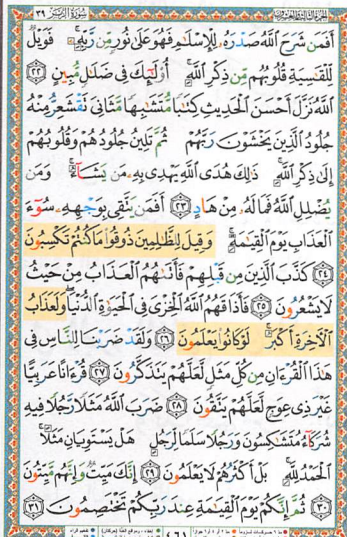 سُورَةُ الزُّمَرِ ٣٩
أَفَمَن شَرَحَ اللَّهُ صَدْرَهُۥ لِلْإِسْلَٰمِ فَهُوَ عَلَىٰ نُورٍ مِّن رَّبِّهِۦ ۚ فَوَيْلٌ
لِّلْقَٰسِيَةِ قُلُوبُهُم مِّن ذِكْرِ اللَّهِ ۚ أُو۟لَٰٓئِكَ فِى ضَلَٰلٍ مُّبِينٍ ﴿٢٢﴾
اللَّهُ نَزَّلَ أَحْسَنَ الْحَدِيثِ كِتَٰبًا مُّتَشَٰبِهًا مَّثَانِىَ تَقْشَعِرُّ مِنْهُ
جُلُودُ الَّذِينَ يَخْشَوْنَ رَبَّهُمْ ثُمَّ تَلِينُ جُلُودُهُمْ وَقُلُوبُهُمْ
إِلَىٰ ذِكْرِ اللَّهِ ۚ ذَٰلِكَ هُدَى اللَّهِ يَهْدِى بِهِۦ مَن يَشَآءُ ۚ وَمَن
يُضْلِلِ اللَّهُ فَمَا لَهُۥ مِنْ هَادٍ ﴿٢٣﴾ أَفَمَن يَتَّقِى بِوَجْهِهِۦ سُوٓءَ
الْعَذَابِ يَوْمَ الْقِيَٰمَةِ ۚ وَقِيلَ لِلظَّٰلِمِينَ ذُوقُوا۟ مَا كُنتُمْ تَكْسِبُونَ
﴿٢٤﴾ كَذَّبَ الَّذِينَ مِن قَبْلِهِمْ فَأَتَىٰهُمُ الْعَذَابُ مِنْ حَيْثُ
لَا يَشْعُرُونَ ﴿٢٥﴾ فَأَذَاقَهُمُ اللَّهُ الْخِزْىَ فِى الْحَيَوٰةِ الدُّنْيَا ۖ وَلَعَذَابُ
الْءَاخِرَةِ أَكْبَرُ ۚ لَوْ كَانُوا۟ يَعْلَمُونَ ﴿٢٦﴾ وَلَقَدْ ضَرَبْنَا لِلنَّاسِ فِى
هَٰذَا الْقُرْءَانِ مِن كُلِّ مَثَلٍ لَّعَلَّهُمْ يَتَذَكَّرُونَ ﴿٢٧﴾ قُرْءَانًا عَرَبِيًّا
غَيْرَ ذِى عِوَجٍ لَّعَلَّهُمْ يَتَّقُونَ ﴿٢٨﴾ ضَرَبَ اللَّهُ مَثَلًا رَّجُلًا فِيهِ
شُرَكَآءُ مُتَشَٰكِسُونَ وَرَجُلًا سَلَمًا لِّرَجُلٍ هَلْ يَسْتَوِيَانِ مَثَلًا ۚ
الْحَمْدُ لِلَّهِ ۚ بَلْ أَكْثَرُهُمْ لَا يَعْلَمُونَ ﴿٢٩﴾ إِنَّكَ مَيِّتٌ وَإِنَّهُم مَّيِّتُونَ
﴿٣٠﴾ ثُمَّ إِنَّكُمْ يَوْمَ الْقِيَٰمَةِ عِندَ رَبِّكُمْ تَخْتَصِمُونَ ﴿٣١﴾
٤٦١